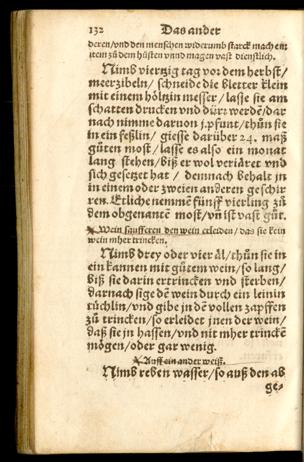 132 Das ander
deren/vnd den menschen widerumb starck mach en
item zů dem hůsten vnnd magen vast dienstlich.
Nimb viertzig tag vor dem herbst/
meerzibeln/ schneide die bletter klein
mit einem höltzin messer/ lasse sie am
schatten drucken vnd dürr werdē/dar
nach nimme daruon j.pfunt/thůn sie
in ein feßlin/ giesse darüber 24. maß
gůten most/ lasse es also ein monat
lang stehen/biß er wol verjäret vnd
sich gesetzet hat / demnach behalt jn
in einem oder zweien anderen geschir
ren. Etliche nemmē fünff vierling zů
dem obgenantē most/vn̄ ist vast gůt.
Wein saufferen den wein erleiden/ das sie kein
wein mher trincken.
Nimb drey oder vier äl/thůn sie in
ein kannen mit gůtem wein/so lang/
biß sie darin ertrincken vnd sterben/
darnach sige dē wein durch ein leinin
tüchlin/vnd gibe jn dē vollen zapffen
zů trincken/so erleidet jnen der wein/
daß sie jn hassen/vnd nit mher trinckē
mögen/oder gar wenig.
Auff ein ander weiß.
Nimb reben wasser/so auß den ab
ge-